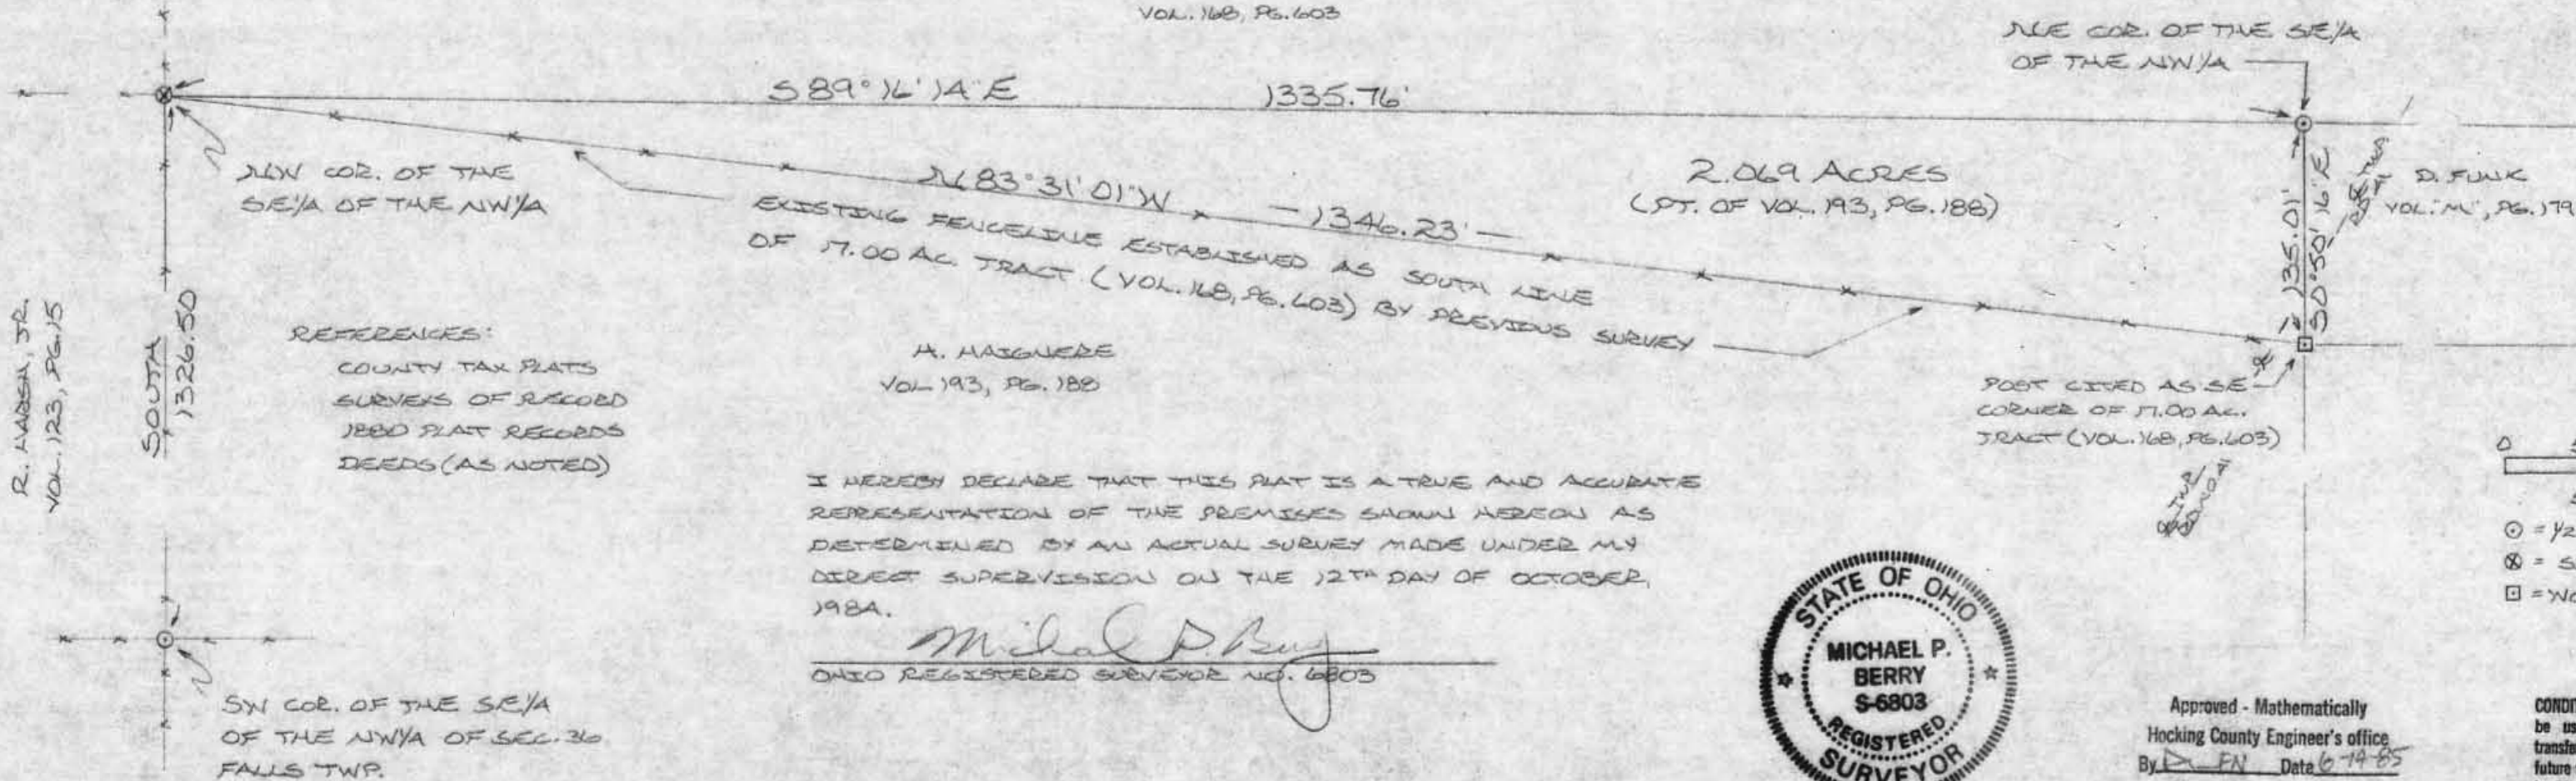 VOL. 168, PG. 603
NE COR. OF THE SE1/4
OF THE NW1/4
S 89° 16' 14" E 1335.76'
NW COR. OF THE
SE1/4 OF THE NW1/4
N 83° 31' 01" W - 1346.23' -
2.069 ACRES
(PT. OF VOL. 193, PG. 188)
135.01'
S 0° 50' 16" E
D. FUNK
VOL. "M", PG. 179
EXISTING FENCELINE ESTABLISHED AS SOUTH LINE
OF 17.00 AC. TRACT (VOL. 168, PG. 603) BY PREVIOUS SURVEY
R. HARSH, JR.
VOL. 123, PG. 15
SOUTH
1326.50
REFERENCES:
COUNTY TAX PLATS
SURVEYS OF RECORD
1880 PLAT RECORDS
DEEDS (AS NOTED)
H. HAIGNERE
VOL 193, PG. 188
POST CITED AS SE
CORNER OF 17.00 AC.
TRACT (VOL. 168, PG. 603)
0
I HEREBY DECLARE THAT THIS PLAT IS A TRUE AND ACCURATE
REPRESENTATION OF THE PREMISES SHOWN HEREON AS
DETERMINED BY AN ACTUAL SURVEY MADE UNDER MY
DIRECT SUPERVISION ON THE 12TH DAY OF OCTOBER,
1984.
Michael P. Berry
OHIO REGISTERED SURVEYOR NO. 6803
SW COR. OF THE SE1/4
OF THE NW1/4 OF SEC. 36
FALLS TWP.
STATE OF OHIO
MICHAEL P.
BERRY
S-6803
REGISTERED
SURVEYOR
Approved - Mathematically
Hocking County Engineer's office
By Date 6-14-85
be us